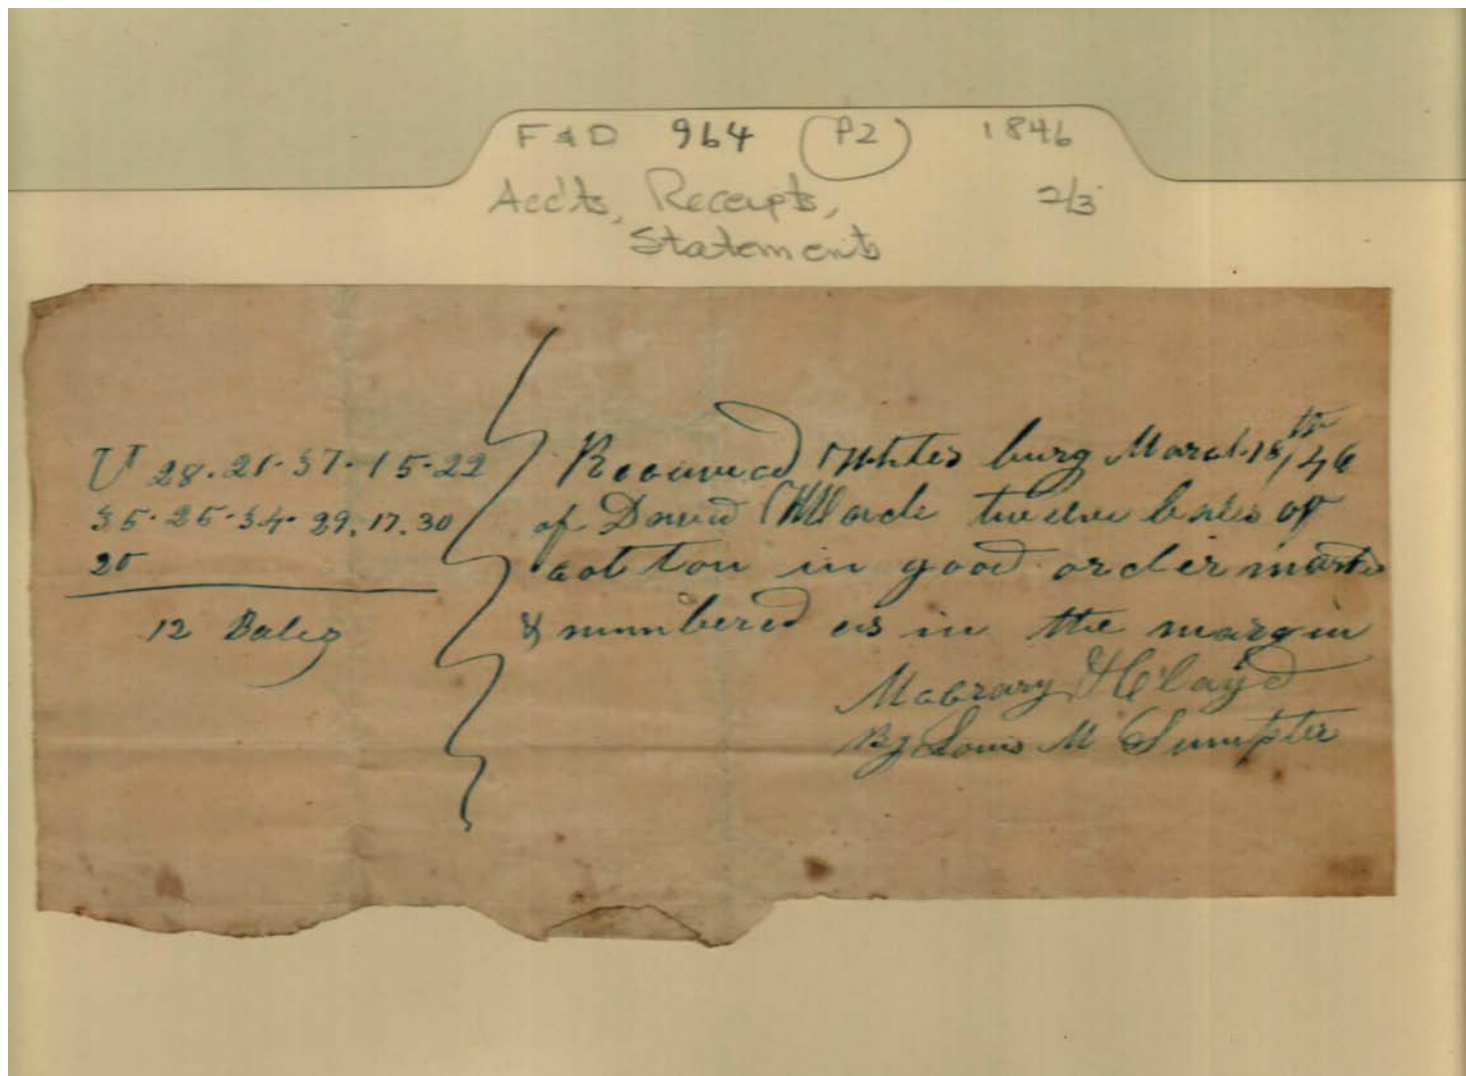 F & D 964 (P2) 1846
Acc'ts, Receipts, 2/3
Statements
U 28. 21. 37. 15. 22
35. 25. 34. 29. 17. 30
20
12 Bales
Received Whites burg March 18th / 46
of David twelve bales of
cotton in good order marked
& numbered as in the margin
Mabrary &
By Louis M Sumpter